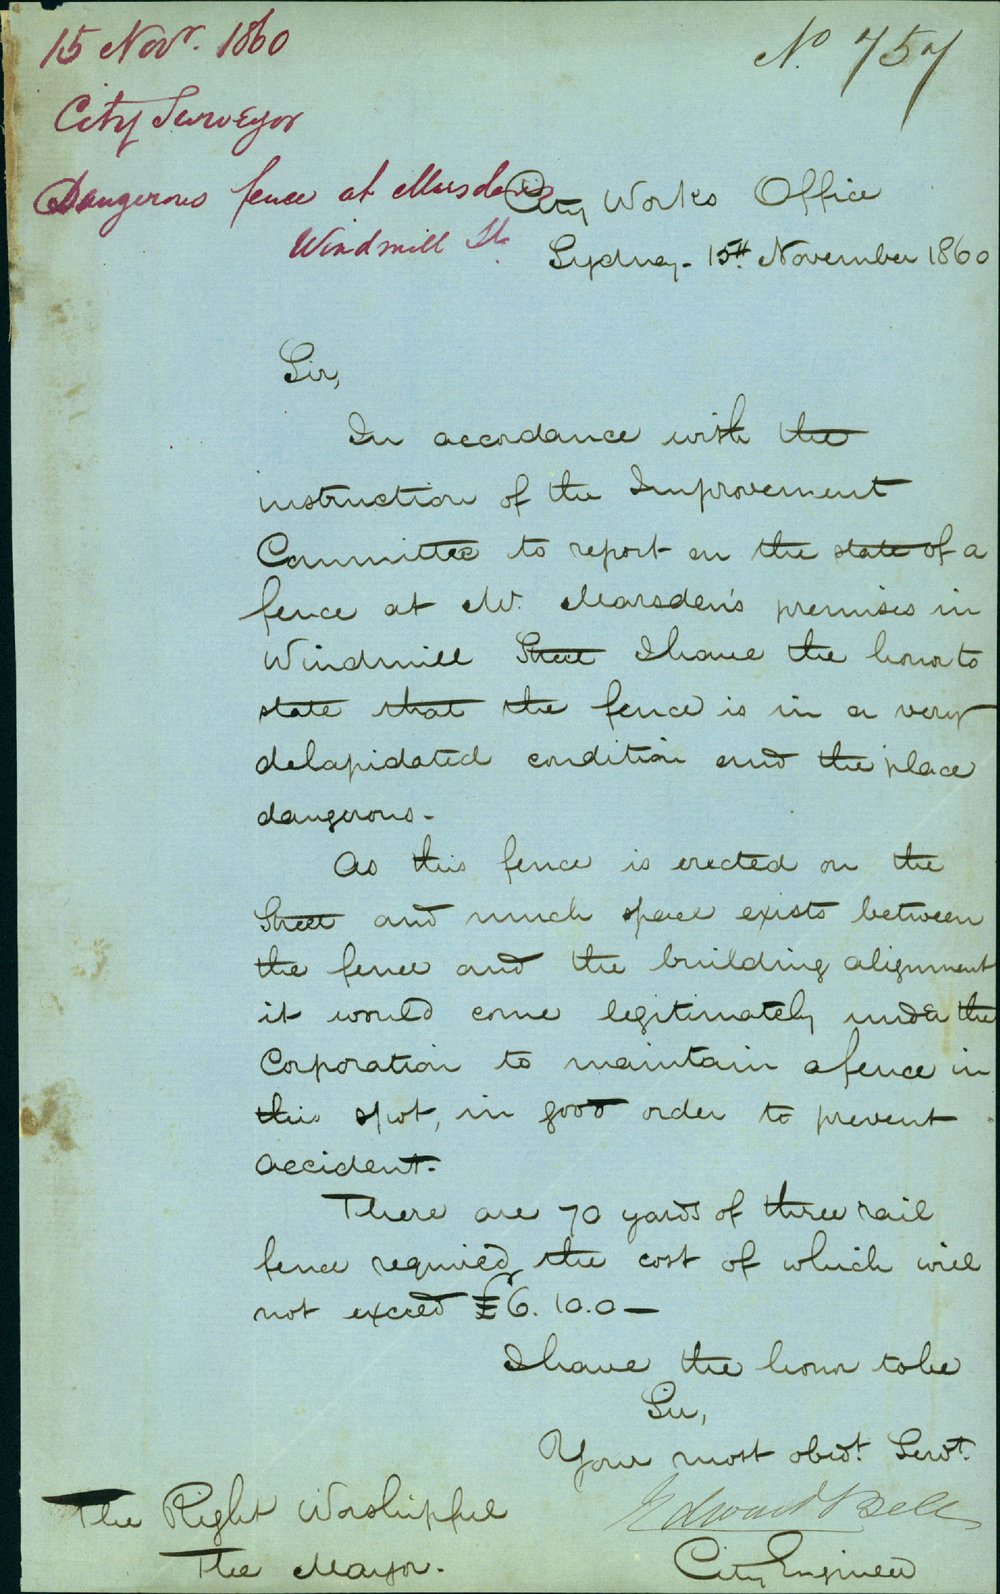 15 Novr. 1860
No. 757
City Surveyor
Dangerous fence at Marsdens
Windmill St.
City Works Office
Sydney - 15th. November 1860
Sir,
In accordance with the
instruction of the Improvement
Committee to report on the state of a
fence at Mr. Marsden's premises in
Windmill Street I have the honor to
state that the fence is in a very
delapidated condition and the place
dangerous -
As this fence is erected on the
Street and much space exists between
the fence and the building alignment
it would come legitimately under the
Corporation to maintain a fence in
this spot, in good order to prevent
accident -
There are 70 yards of three rail
fence required, the cost of which will
not exceed £6. 10. 0 —
I have the honor to be
Sir,
Your most obedt. Servt.
Edward Bell
City Engineer
The Right Worshipful
The Mayor.